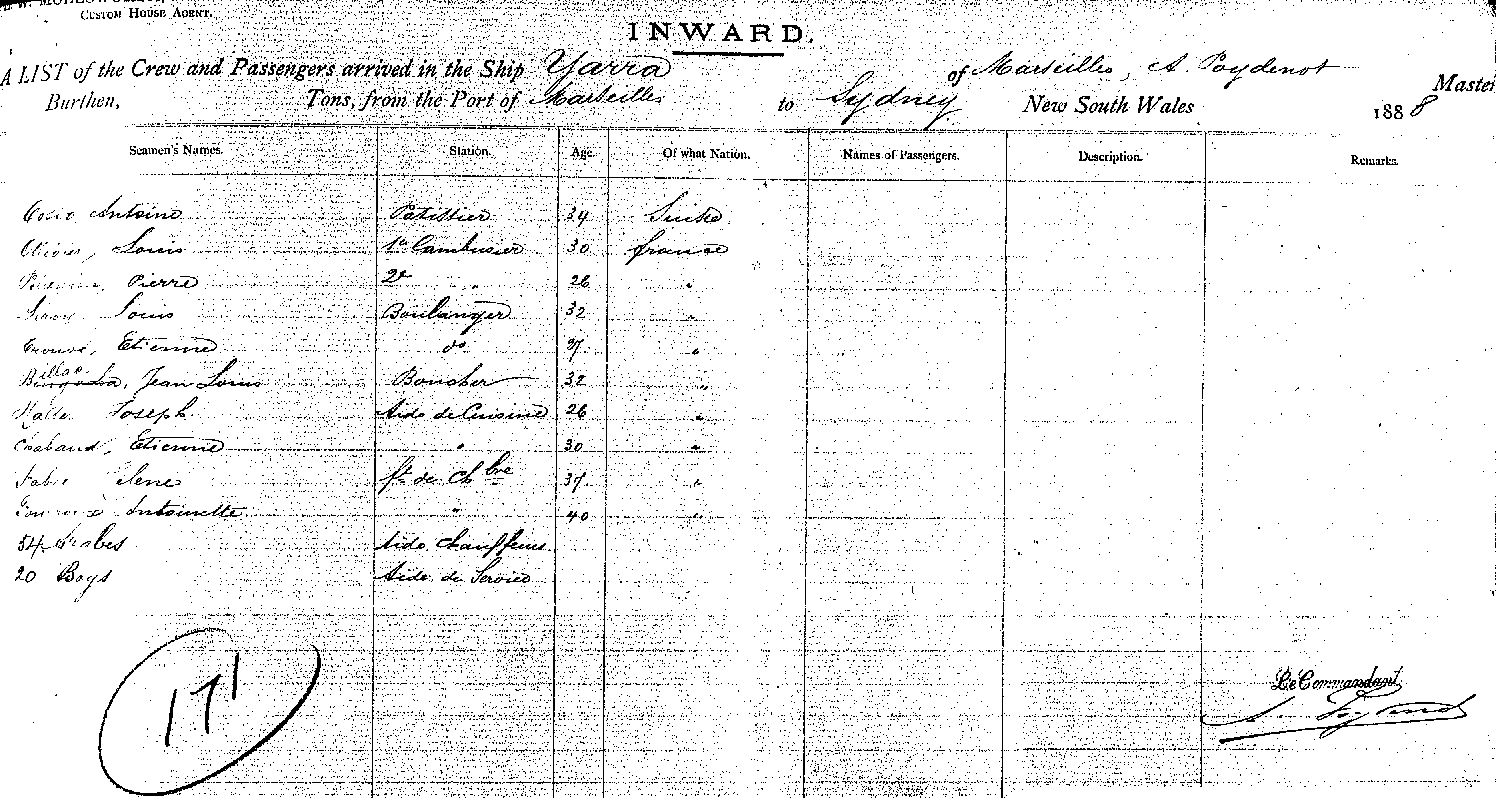 CUSTOM HOUSE AGENT.
INWARD.
A LIST of the Crew and Passengers arrived in the Ship Yarra of Marseilles, A. Poydenot Master
Burthen, Tons, from the Port of Marseilles to Sydney New South Wales 1888
Seamen's Names. Station. Age. Of what Nation. Names of Passengers. Description. Remarks.
Antoine Patissier 34 Suisse
Olivier, Louis 1er Cambusier 30 france
Pierre 2e " 26 "
Louis Boulanger 32 "
Etienne do 37 "
Billac, Jean Louis Boucher 32 "
Joseph Aide de Cuisine 26 "
Chabaud, Etienne " 30 "
Fabre Irene fe de Chbre 37 "
Antoinette " 40 "
54 Arabes Aide Chauffeurs
20 Boys Aide de Service
171
Le Commandant